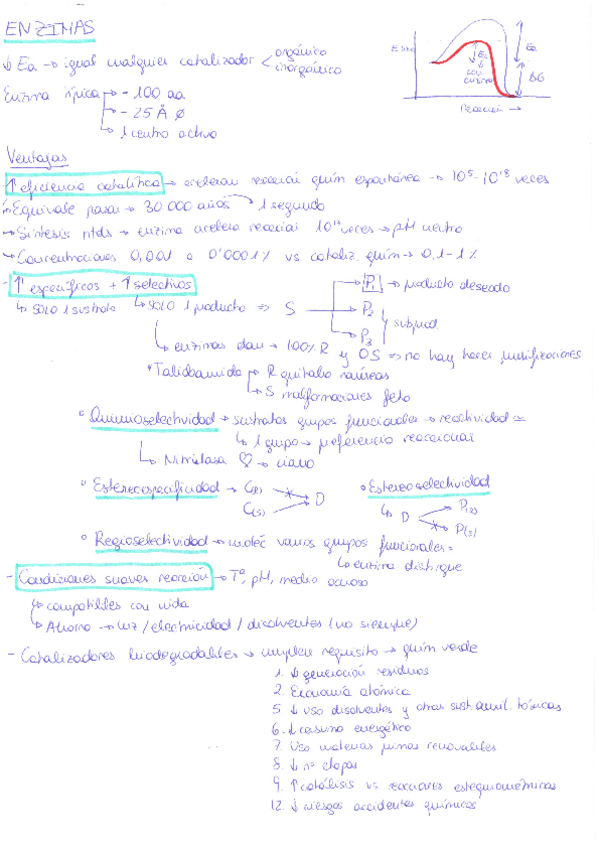 ENZIMAS
↓ Ea → igual cualquier catalizador < orgánico
inorgánico
Enzima típica → ~ 100 aa
→ ~ 25 Å Ø
→ 1 centro activo
Ea
Ea con enzima
ΔG
reacción →
Ventajas
↑ eficiencia catalítica → aceleran reacción quím espontánea → 10⁵-10¹⁸ veces
Equivale pasar → 30 000 años 1 segundo
→ Síntesis ntds → enzima acelera reacción veces → pH neutro
→ Concentraciones 0,001 a 0'0001% vs cataliz. quím → 0,1-1%
- ↑ específicos + ↑ selectivos
↳ solo 1 sustrato ↳ solo 1 producto ⇒ S
P₁ → producto deseado
P₂
P₃
subprod
↳ enzimas dan → 100% R y 0 S ⇒ no hay hacer purificaciones
* Talidomida → R quitaba náuseas
↳ S malformaciones feto
° Quimioselectividad → sustratos grupos funcionales → reactividad ≃
↳ 1 grupo → preferencia reaccionar
↳ Nitrilasa ♡ → ciano
° Estereoespecificidad → C(R) D
C(S)
° Estereoselectividad
↳ D P(R)
P(S)
° Regioselectividad → moléc varios grupos funcionales =
↳ enzima distingue
- Condiciones suaves reacción → Tª, pH, medio acuoso
↳ compatibles con vida
↳ Ahorro → luz / electricidad / disolventes (no siempre)
- Catalizadores biodegradables → cumplen requisito → quím verde
1. ↓ generación residuos
2. Economía atómica
5. ↓ uso disolventes y otras sust. auxil. tóxicas
6. ↓ consumo energético
7. Uso materias primas renovables
8. ↓ nº etapas
9. ↑ catálisis vs reacciones estequiométricas
12. ↓ riesgos accidentes químicos